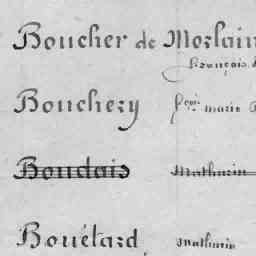 Boucher de Morlain
François
Bouchery marie
Boudois Mathurin
Bouétard Mathurin